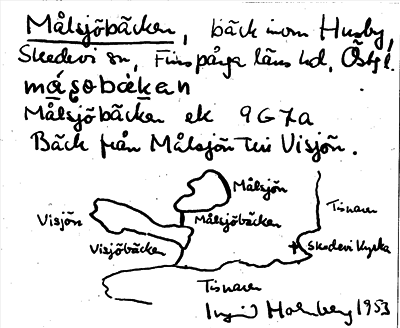 Målsjöbäcken, bäck inom Husby,
Skedevi sn, Finspånga läns hd, Östgl.
Målsjöbäcken ek 9G7a
Bäck från Målsjön till Visjön.
Målsjön
Tisnaren
Visjön
Målsjöbäcken
Visjöbäcken
Skedevi kyrka
Tisnaren
Ingrid Holmberg 1953